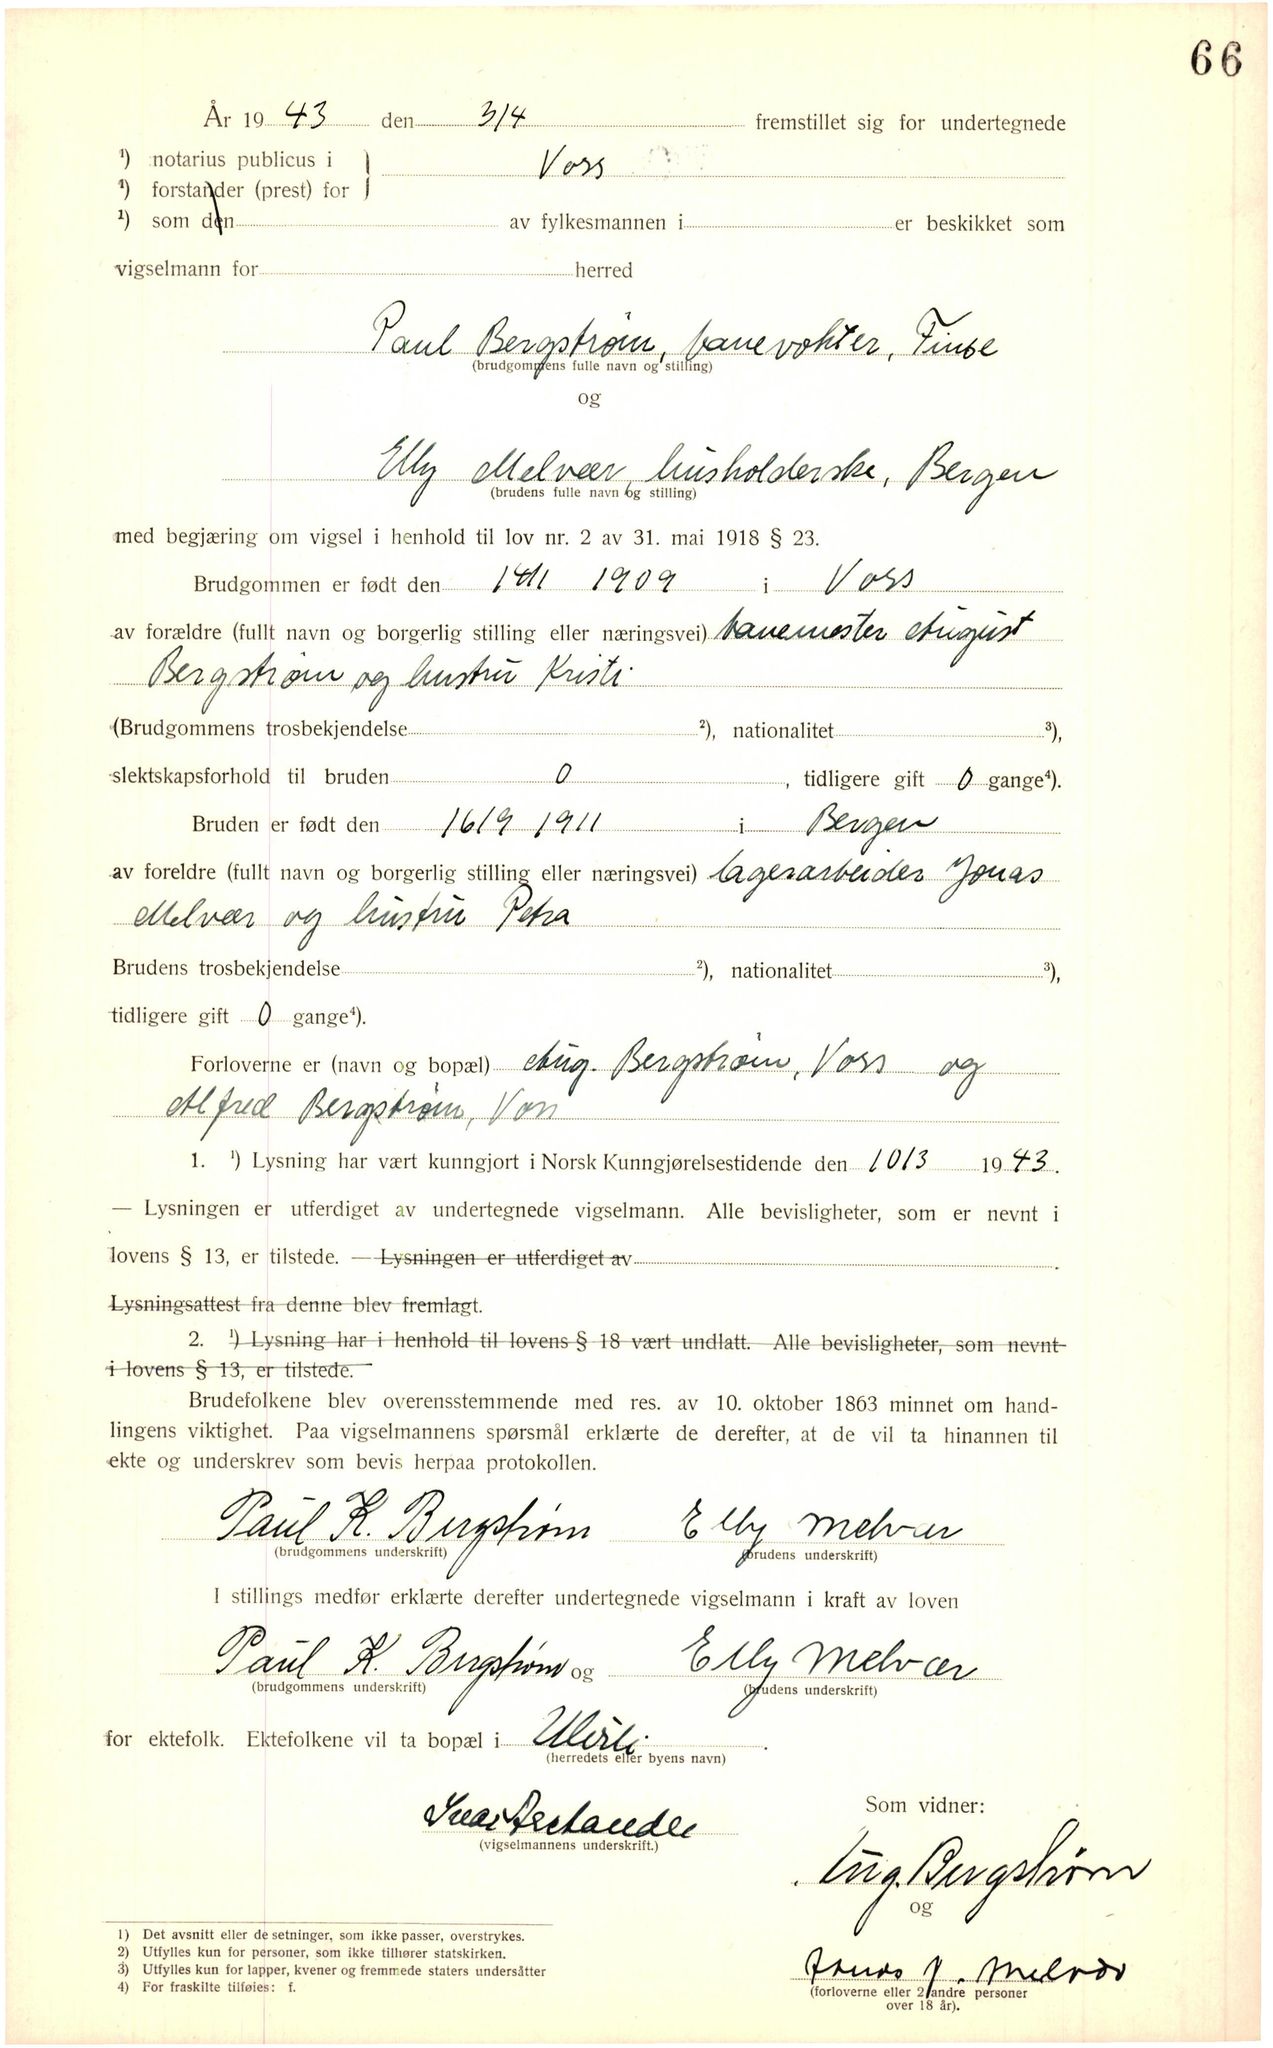 66
År 19 43 den 3/4 fremstillet sig for undertegnede
1) notarius publicus i } Voss
1) forstander (prest) for
1) som den av fylkesmannen i er beskikket som
vigselmann for herred
Paul Bergstrøm, banevokter, Finse
(brudgommens fulle navn og stilling)
og
Elly Melvær, husholderske, Bergen
(brudens fulle navn og stilling)
med begjæring om vigsel i henhold til lov nr. 2 av 31. mai 1918 § 23.
Brudgommen er født den 1909 i Voss
av forældre (fullt navn og borgerlig stilling eller næringsvei) banemester August
Bergstrøm og hustru Kristi
(Brudgommens trosbekjendelse 2), nationalitet 3),
slektskapsforhold til bruden 0, tidligere gift 0 gange4).
Bruden er født den 16/9 1911 i Bergen
av foreldre (fullt navn og borgerlig stilling eller næringsvei) lagerarbeider Jonas
Melvær og hustru Petra
Brudens trosbekjendelse 2), nationalitet 3),
tidligere gift 0 gange4).
Forloverne er (navn og bopæl) Aug. Bergstrøm, Voss og
Alfred Bergstrøm, Voss
1. 1) Lysning har vært kunngjort i Norsk Kunngjørelsestidende den 10/3 1943.
— Lysningen er utferdiget av undertegnede vigselmann. Alle bevisligheter, som er nevnt i
lovens § 13, er tilstede. — Lysningen er utferdiget av .
Lysningsattest fra denne blev fremlagt.
2. 1) Lysning har i henhold til lovens § 18 vært undlatt. Alle bevisligheter, som nevnt
i lovens § 13, er tilstede.
Brudefolkene blev overensstemmende med res. av 10. oktober 1863 minnet om hand-
lingens viktighet. Paa vigselmannens spørsmål erklærte de derefter, at de vil ta hinannen til
ekte og underskrev som bevis herpaa protokollen.
Paul K. Bergstrøm Elly Melvær
(brudgommens underskrift) (brudens underskrift)
I stillings medfør erklærte derefter undertegnede vigselmann i kraft av loven
Paul K. Bergstrøm og Elly Melvær
(brudgommens underskrift) (brudens underskrift)
for ektefolk. Ektefolkene vil ta bopæl i .
(herredets eller byens navn)
Som vidner:
(vigselmannens underskrift.)
Aug. Bergstrøm
og
Jonas J. Melvær
(forloverne eller 2 andre personer
over 18 år).
1) Det avsnitt eller de setninger, som ikke passer, overstrykes.
2) Utfylles kun for personer, som ikke tilhører statskirken.
3) Utfylles kun for lapper, kvener og fremmede staters undersåtter
4) For fraskilte tilføies: f.